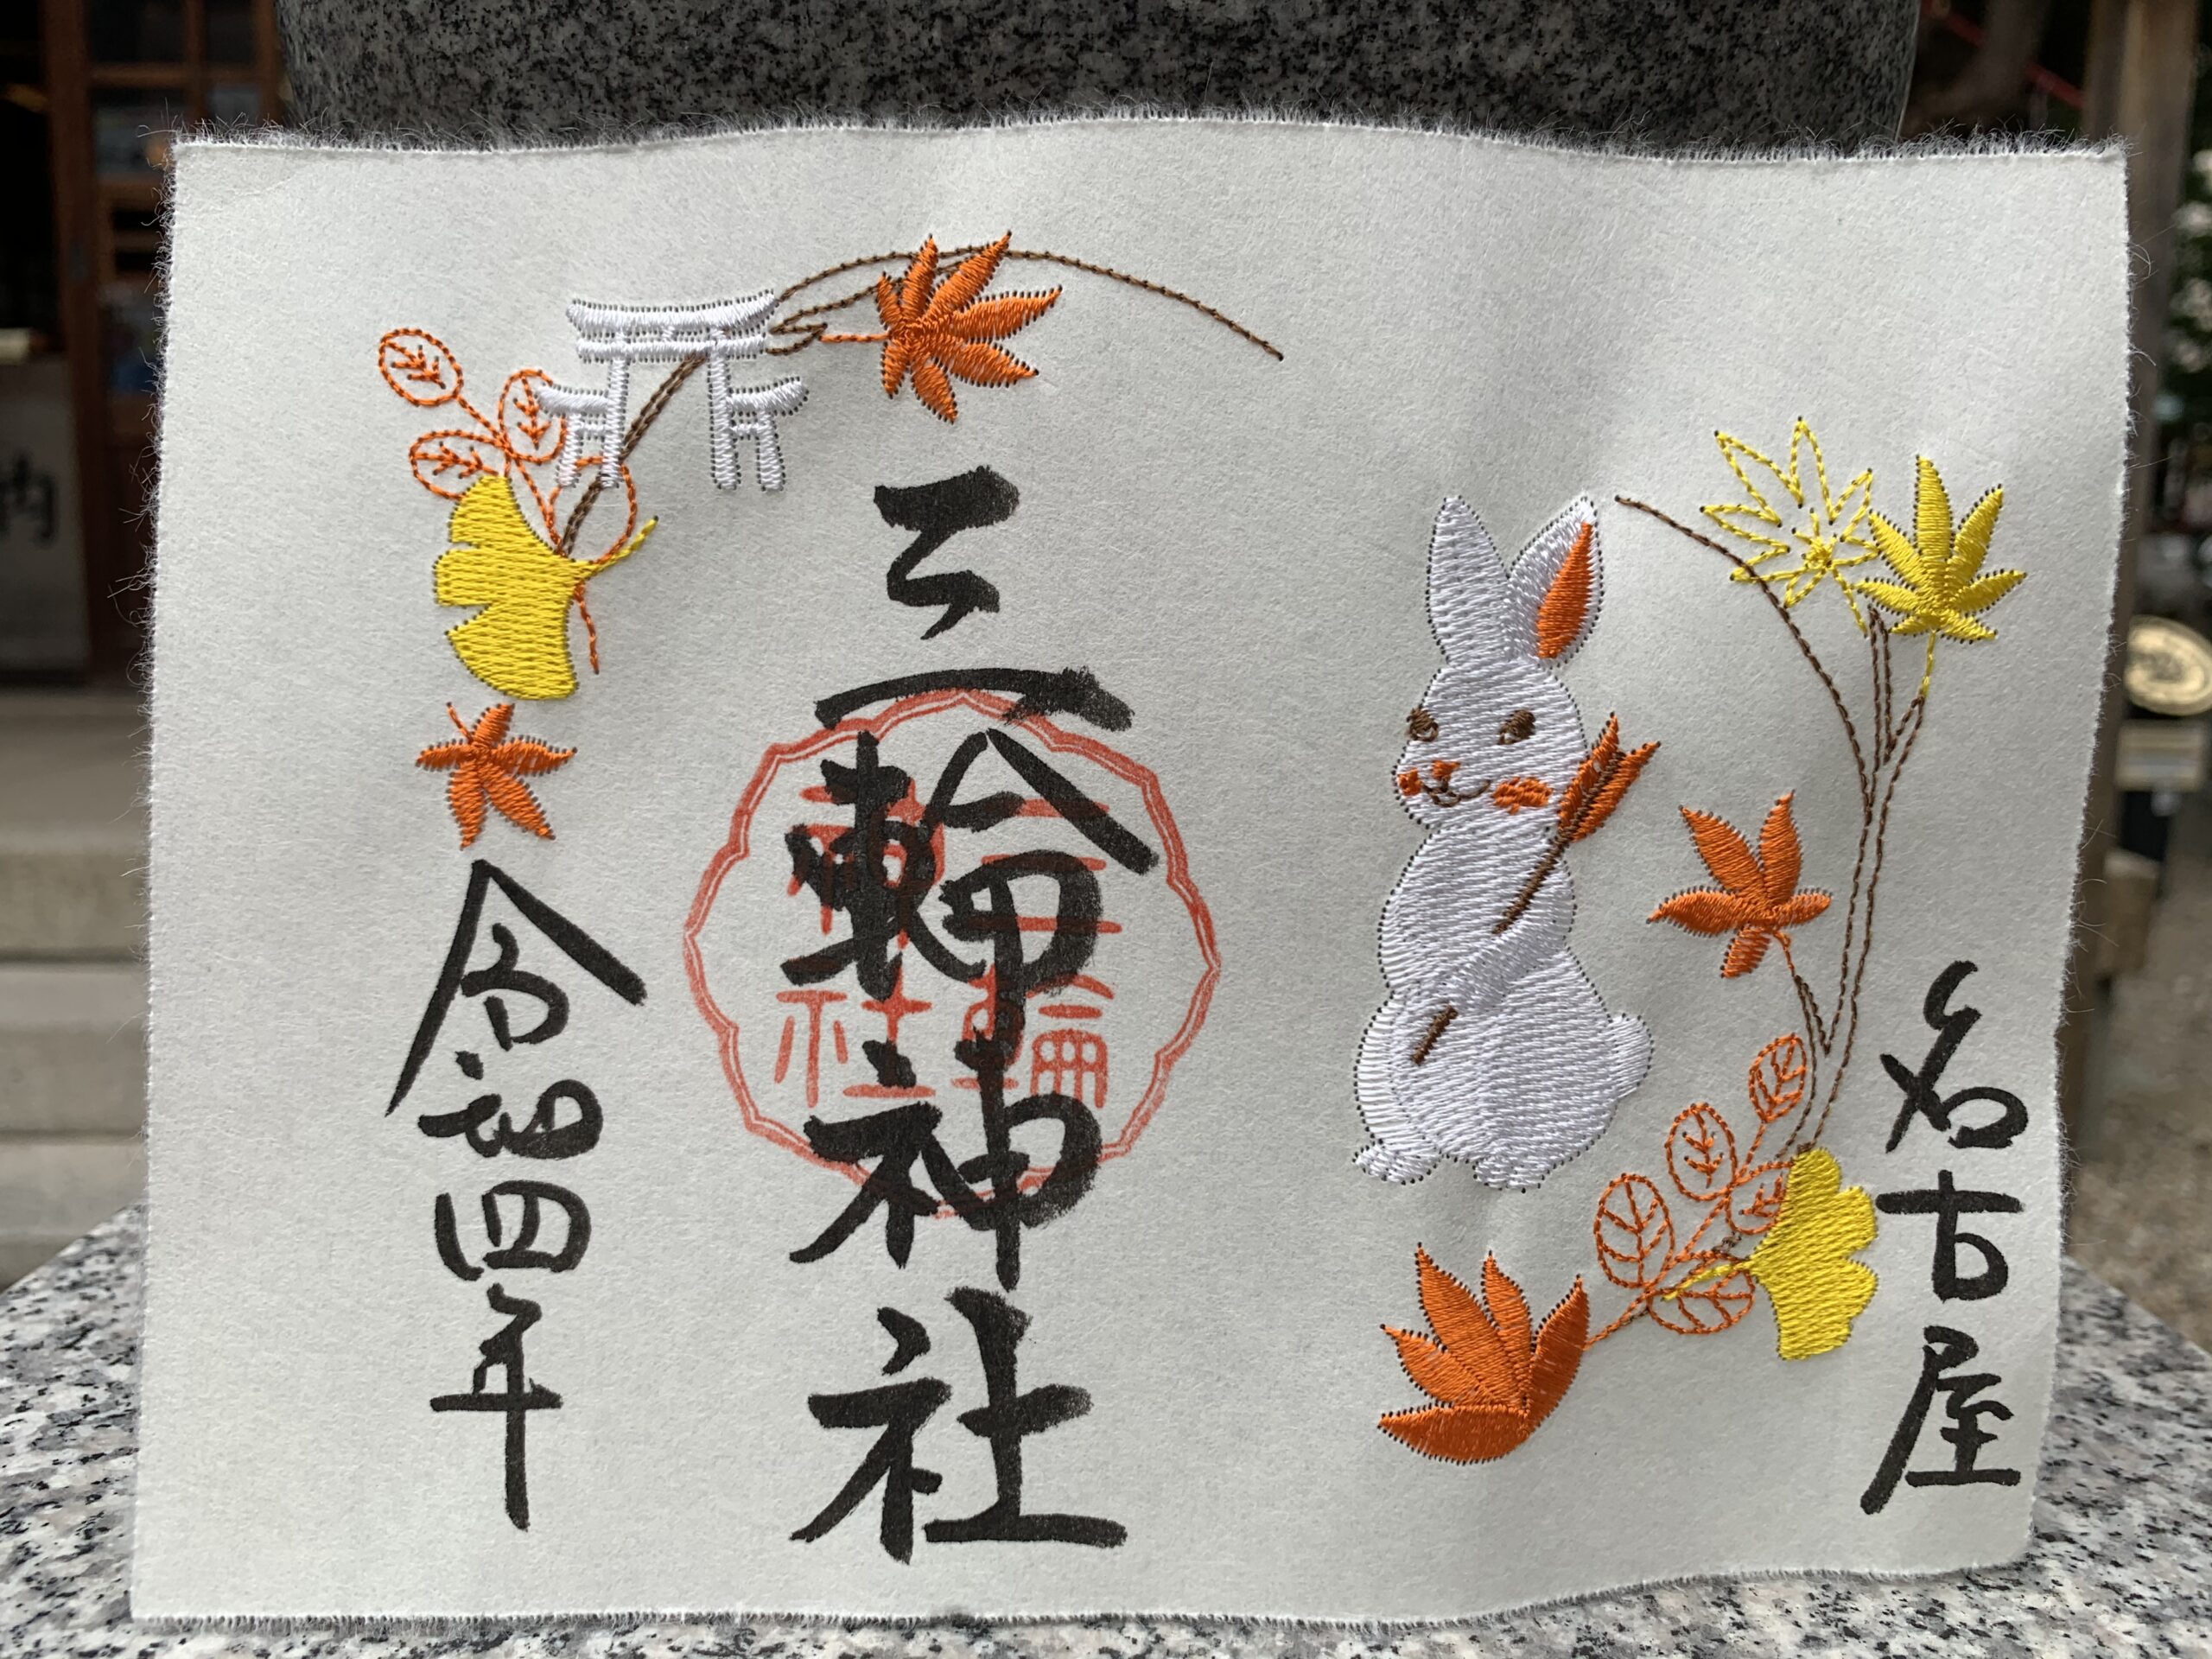 名古屋
三輪神社
三輪
神社
令和四年
納